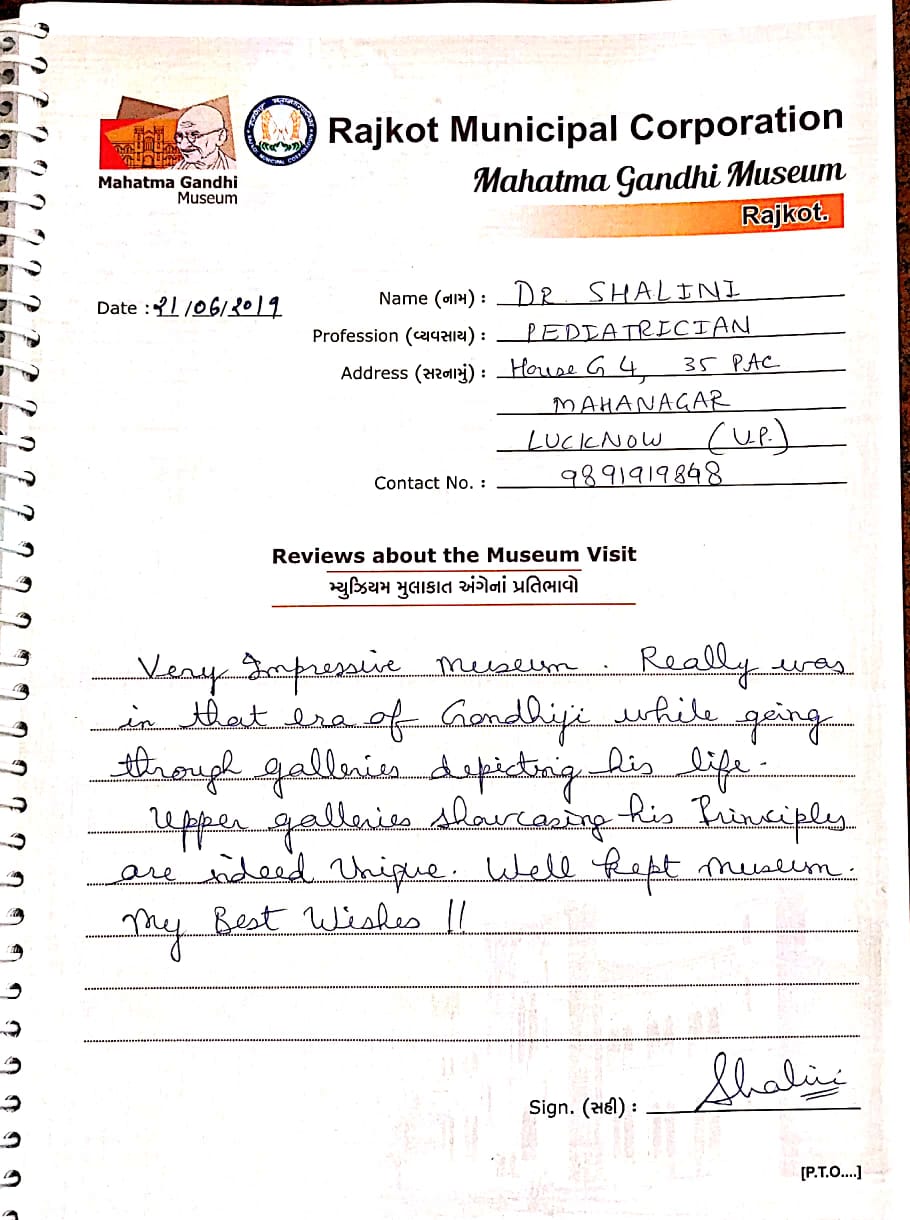 Rajkot Municipal Corporation
Mahatma Gandhi Museum
Rajkot.
Mahatma Gandhi
Museum
Date : ૨1/06/૨૦1૧
Name (નામ) : DR SHALINI
Profession (વ્યવસાય) : PEDIATRICIAN
Address (સરનામું) : House G 4, 35 PAC
MAHANAGAR
LUCKNOW (U.P.)
Contact No. : 9891919848
Reviews about the Museum Visit
મ્યુઝિયમ મુલાકાત અંગેનાં પ્રતિભાવો
Very Impressive museum. Really was
in that era of Gandhiji while going
through galleries depicting his life.
Upper galleries showcasing his Principles
are indeed Unique. Well kept museum.
My Best Wishes !!
Sign. (સહી) : Shalini
[P.T.O....]